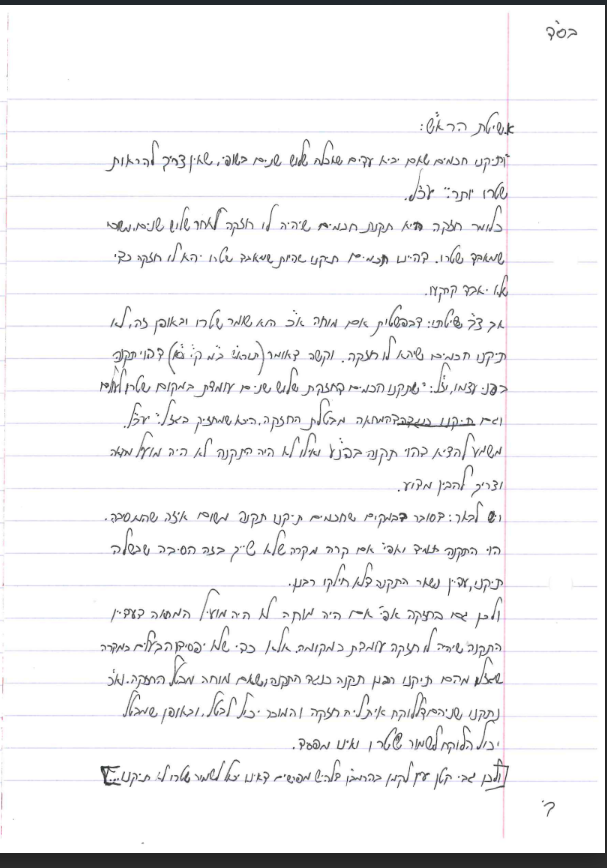 בס"ד
א. שיטת הרא"ש:
"ותיקנו חכמים שאם יביא עדים שאכלה שלוש שנים בשופי, שאין צריך להראות
שטרו יותר" עכ"ל.
כלומר חזקה היא תקנת חכמים שיהיה לו חזקה לאחר שלוש שנים, משום
שמאבד שטרו. דהיינו חכמים תיקנו שהיות שמאבד שטרו יהא לו חזקה כדי
שלא יאבד קרקעו.
אך צ"ב שיטתו: דבפשטות אם מוחה א"כ הוא שומר שטרו ובאופן זה, לא
תיקנו חכמים שיהא לו חזקה. וקשה דאומר דהוי תקנה
בפני עצמו, וז"ל: "שתקנו חכמים דחזקת שלוש שנים עומדת במקום שטר
וגם תיקנו כנגדה דהמחאה מבטלת החזקה, היא שמחזיק בגזל." עכ"ל.
משמע להדיא דהוי תקנה בפנ"ע ואילו לא היה התקנה לא היה מועיל מחאה
וצריך להבין מדוע.
ויש לבאר: דסובר דבמקום שחכמים תיקנו תקנה משום איזה שהם סיבה.
הוי התקנה תמיד ואפי' אם קרה מקרה שלא שייך בזה הסיבה שבשלה
תיקנו, עדיין נשאר התקנה דלא חילקו רבנן.
ולכן גם בחזקה אפי' אם היה מוחה לא היה מועיל המחאה דעדיין
התקנה שיהיה לו חזקה עומדת במקומה. אלא כדי שלא יפסידו הבעלים במקרה
שגזלו מהם תיקנו רבנן תקנה כנגד התקנה, שאם מוחה מבטל החזקה. וא"כ
נתקנו שניהם דללוקח איכא ליה חזקה והמוכר יכול לבטל, ובאופן שמבטל
יכול הלוקח לשמור שטרו ואינו מפסד.
[ולכן גבי קטן עיין לקמן דאינו יכול לשמור שטרו לא תיקנו...]
ב'